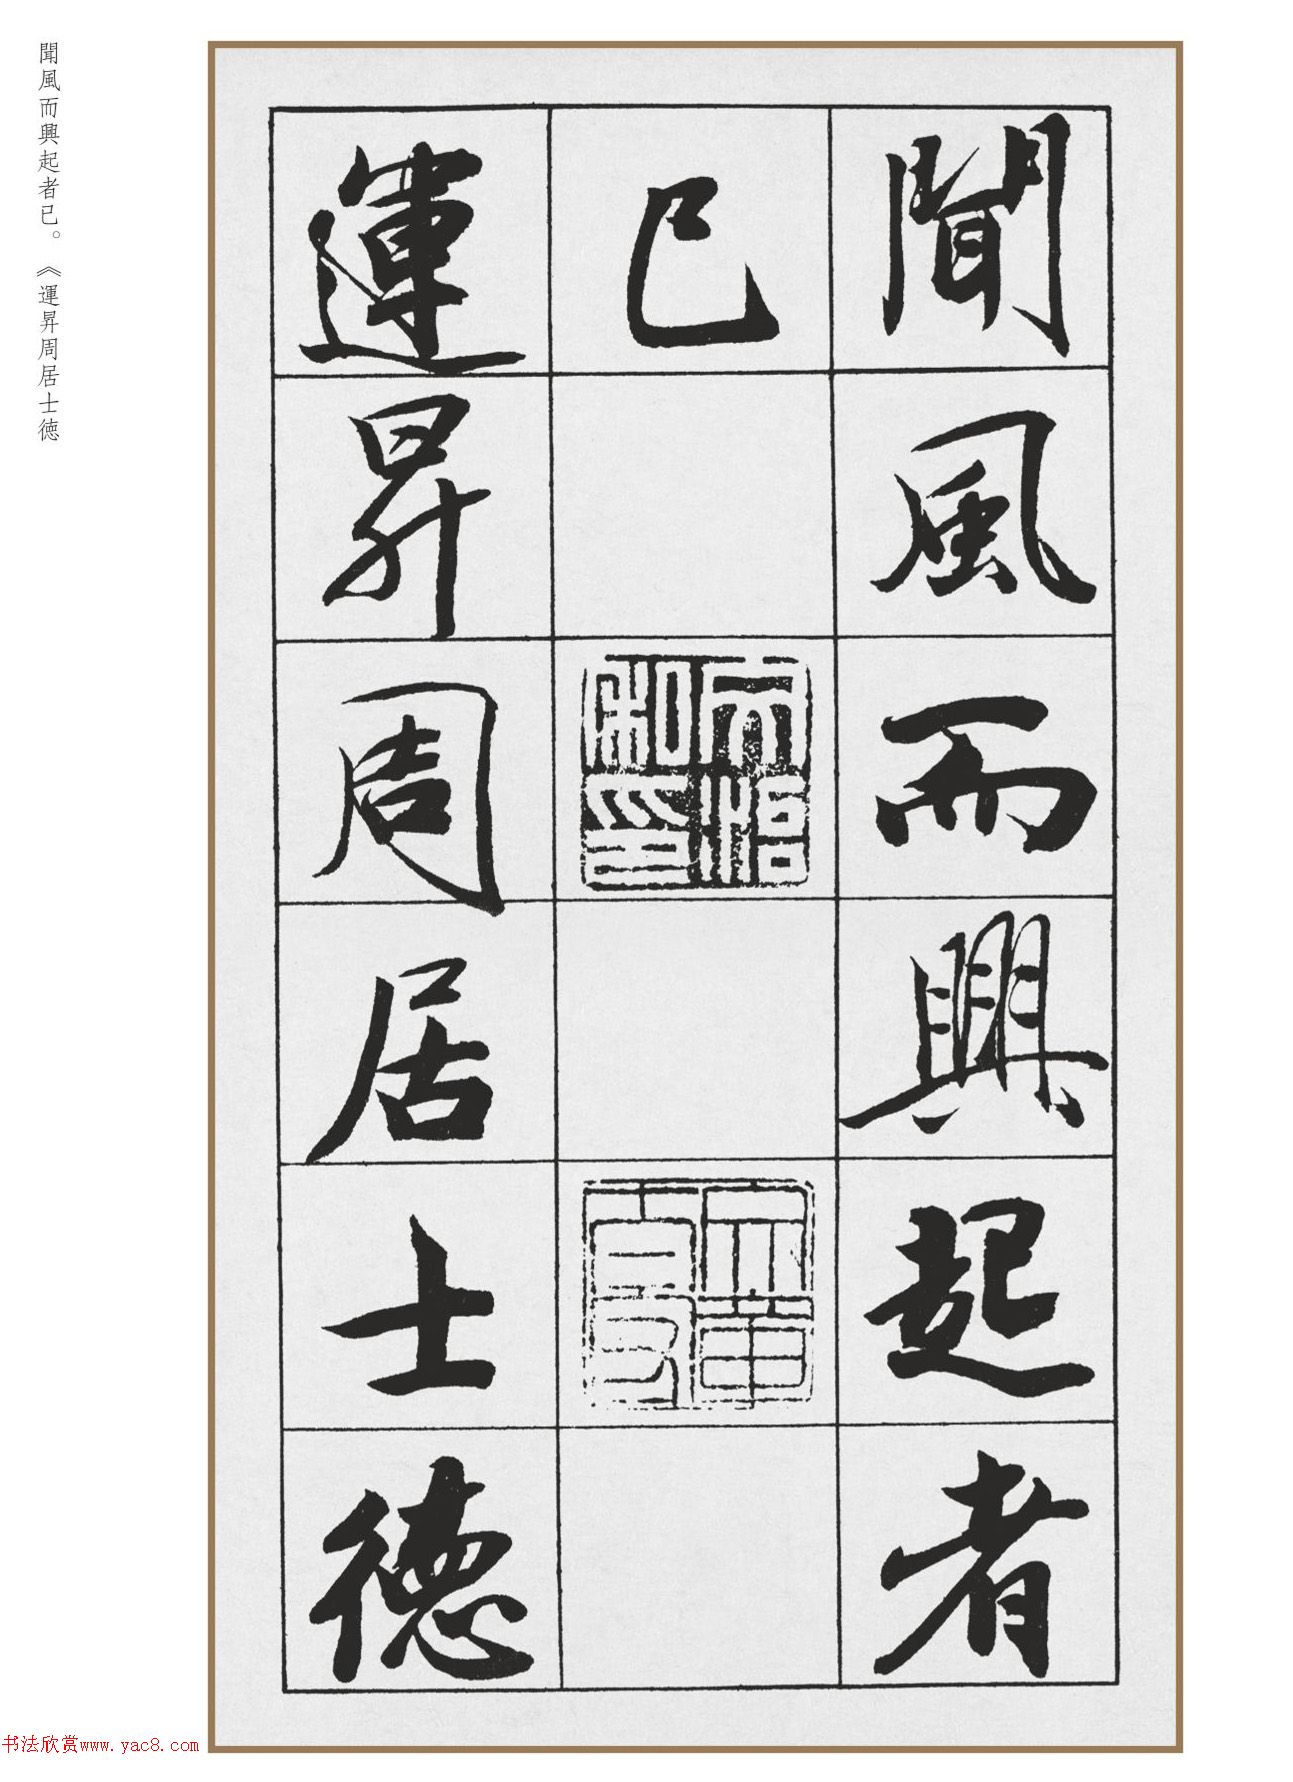 聞風而興起者
已
運昇周居士德
聞風而興起者已。《運昇周居士德
书法欣赏www.yac8.com